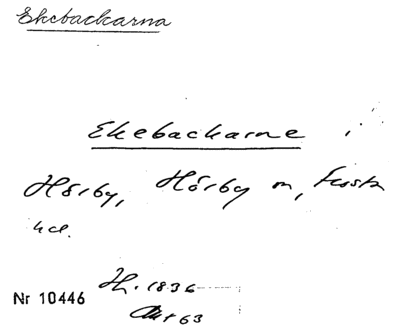 Ekebackarna
Ekebackarne i
Hörby, Hörby sn, Frosta
hd.
Nr 10446 Hr. 1836
Akt 63